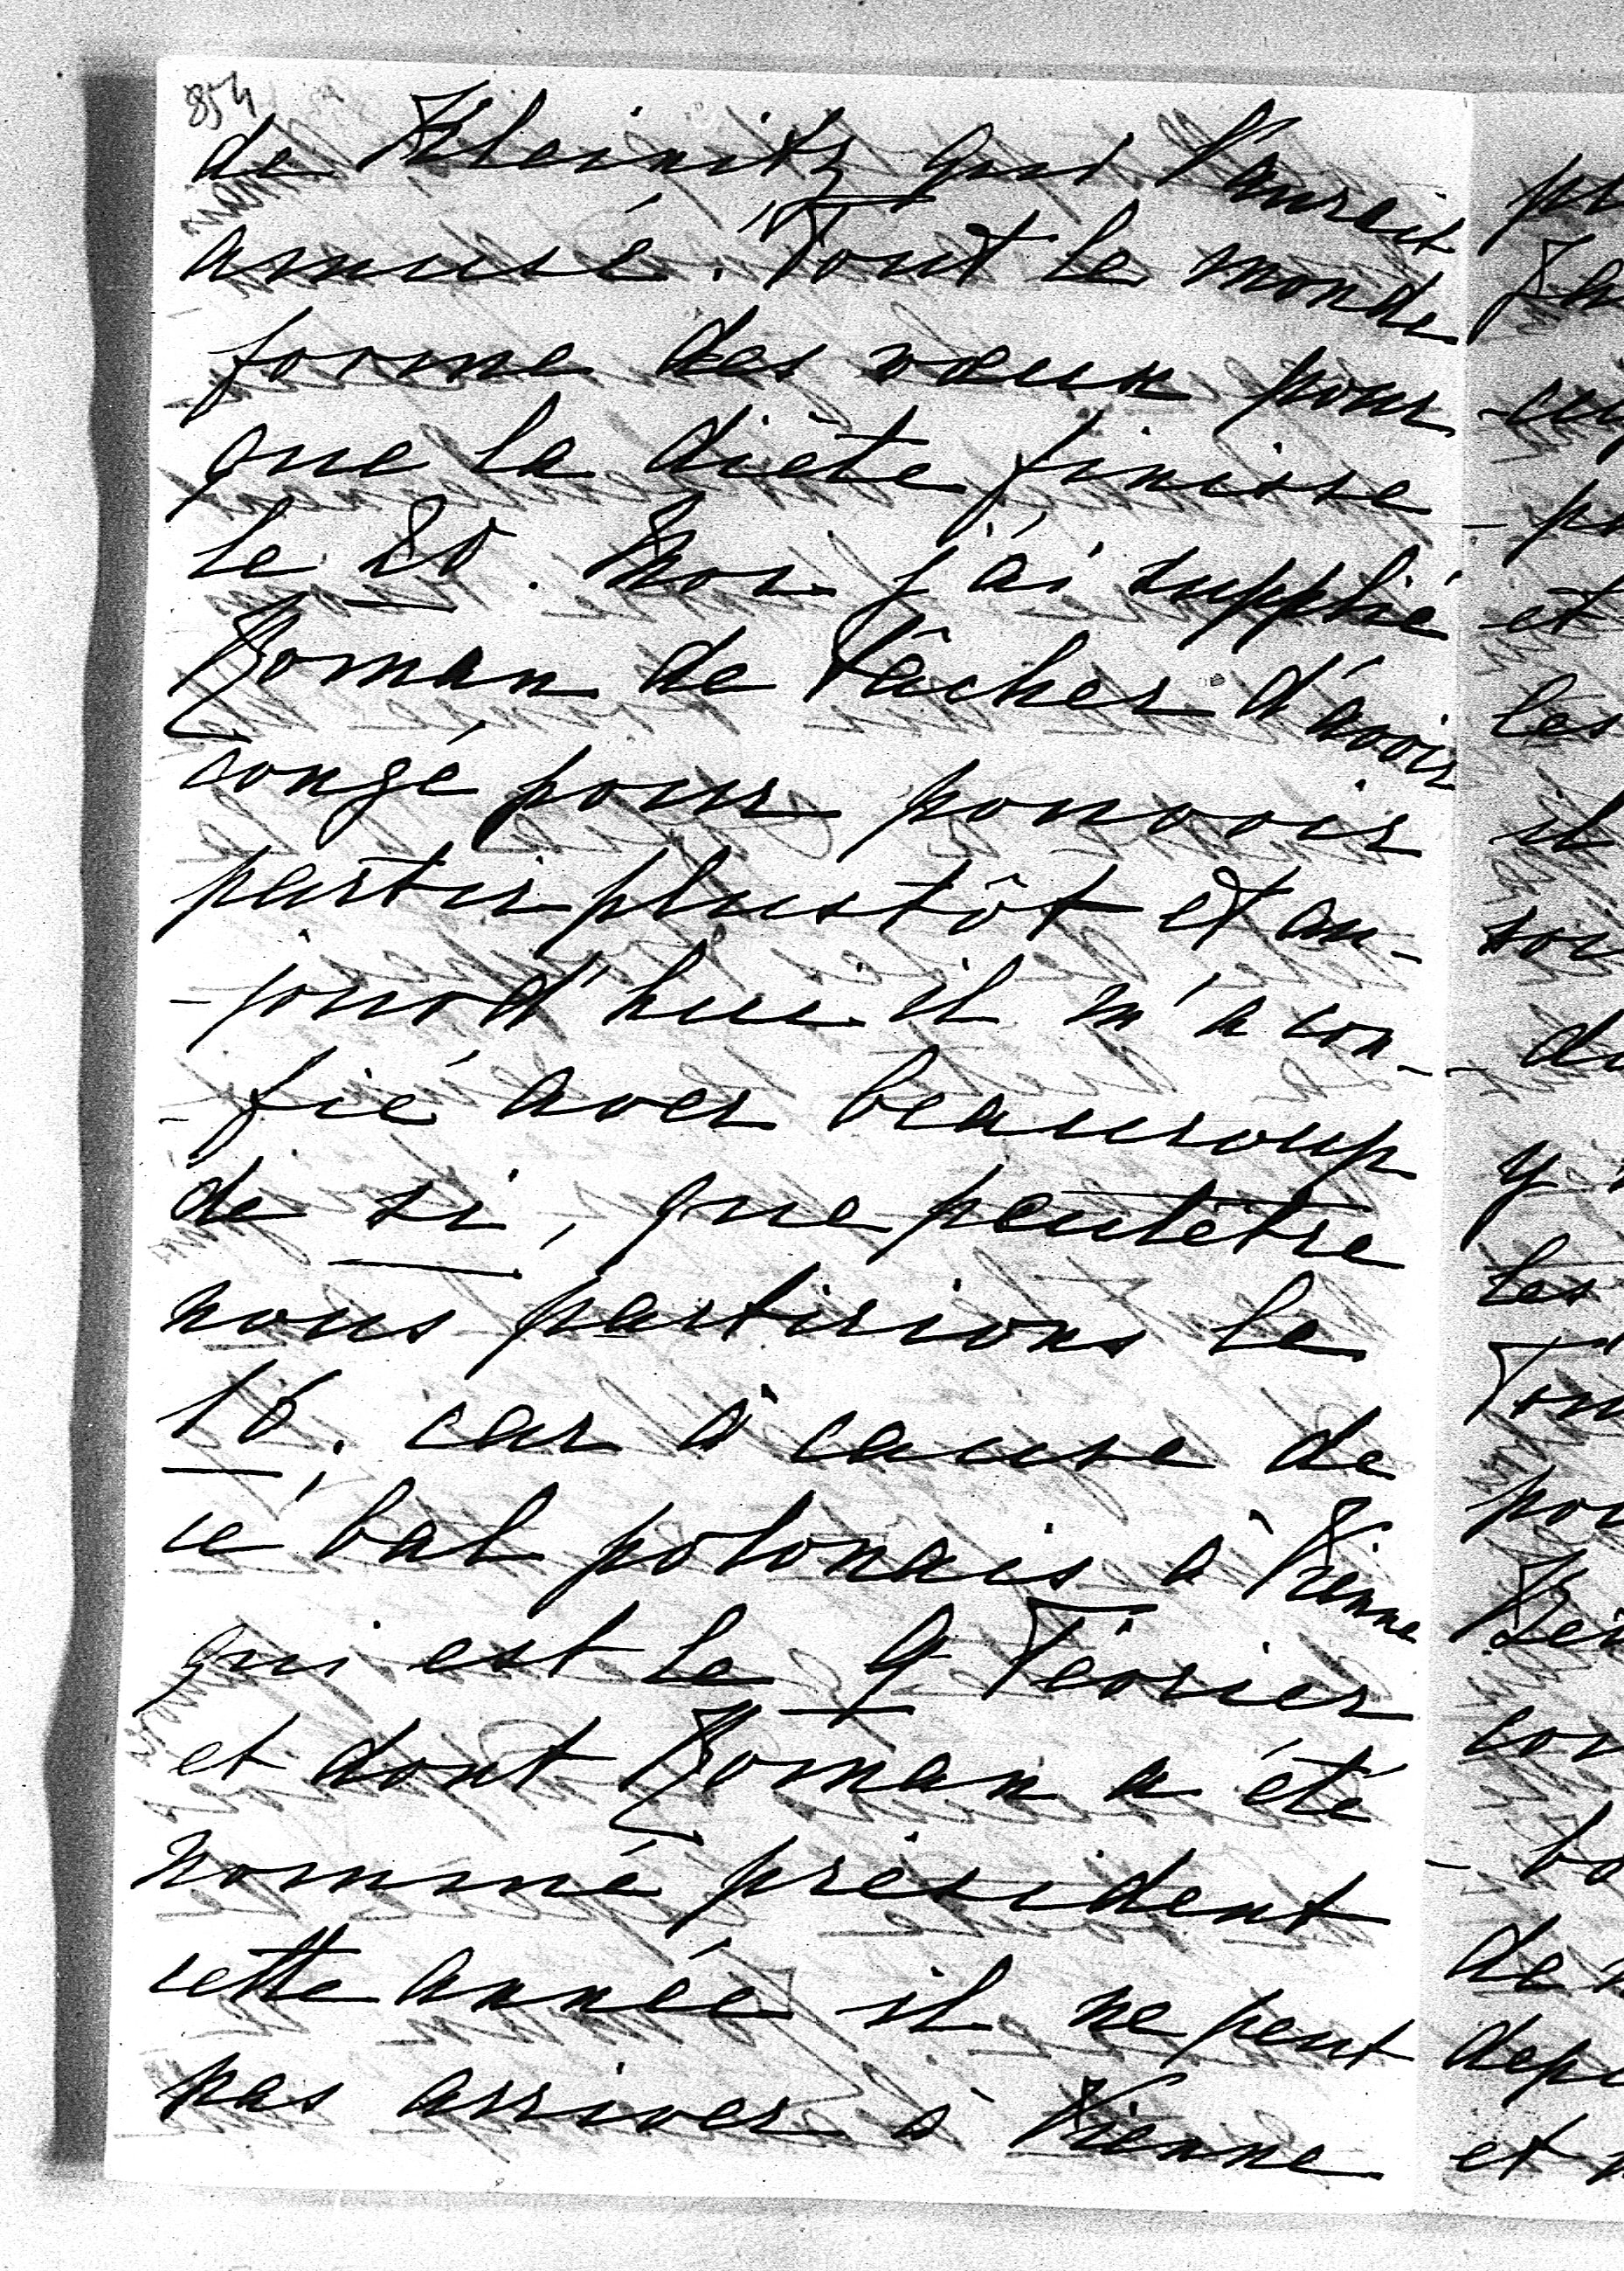 854
de Kleinitz qui l'aurait
amusé. Tout le monde
forme des vœux pour
que la diète finisse
le 20. Moi j'ai supplié
Roman de tâcher d'avoir
congé pour pouvoir
partir plustôt et au-
-jourd'hui il m'a con-
-fié avec beaucoup
de si, que peutêtre
nous partirions le
16. car à cause de
ce bal polonais à Vienne
qui est le 9 Février
et dont Roman a été
nommé président
cette année il ne peut
pas arriver à Vienne